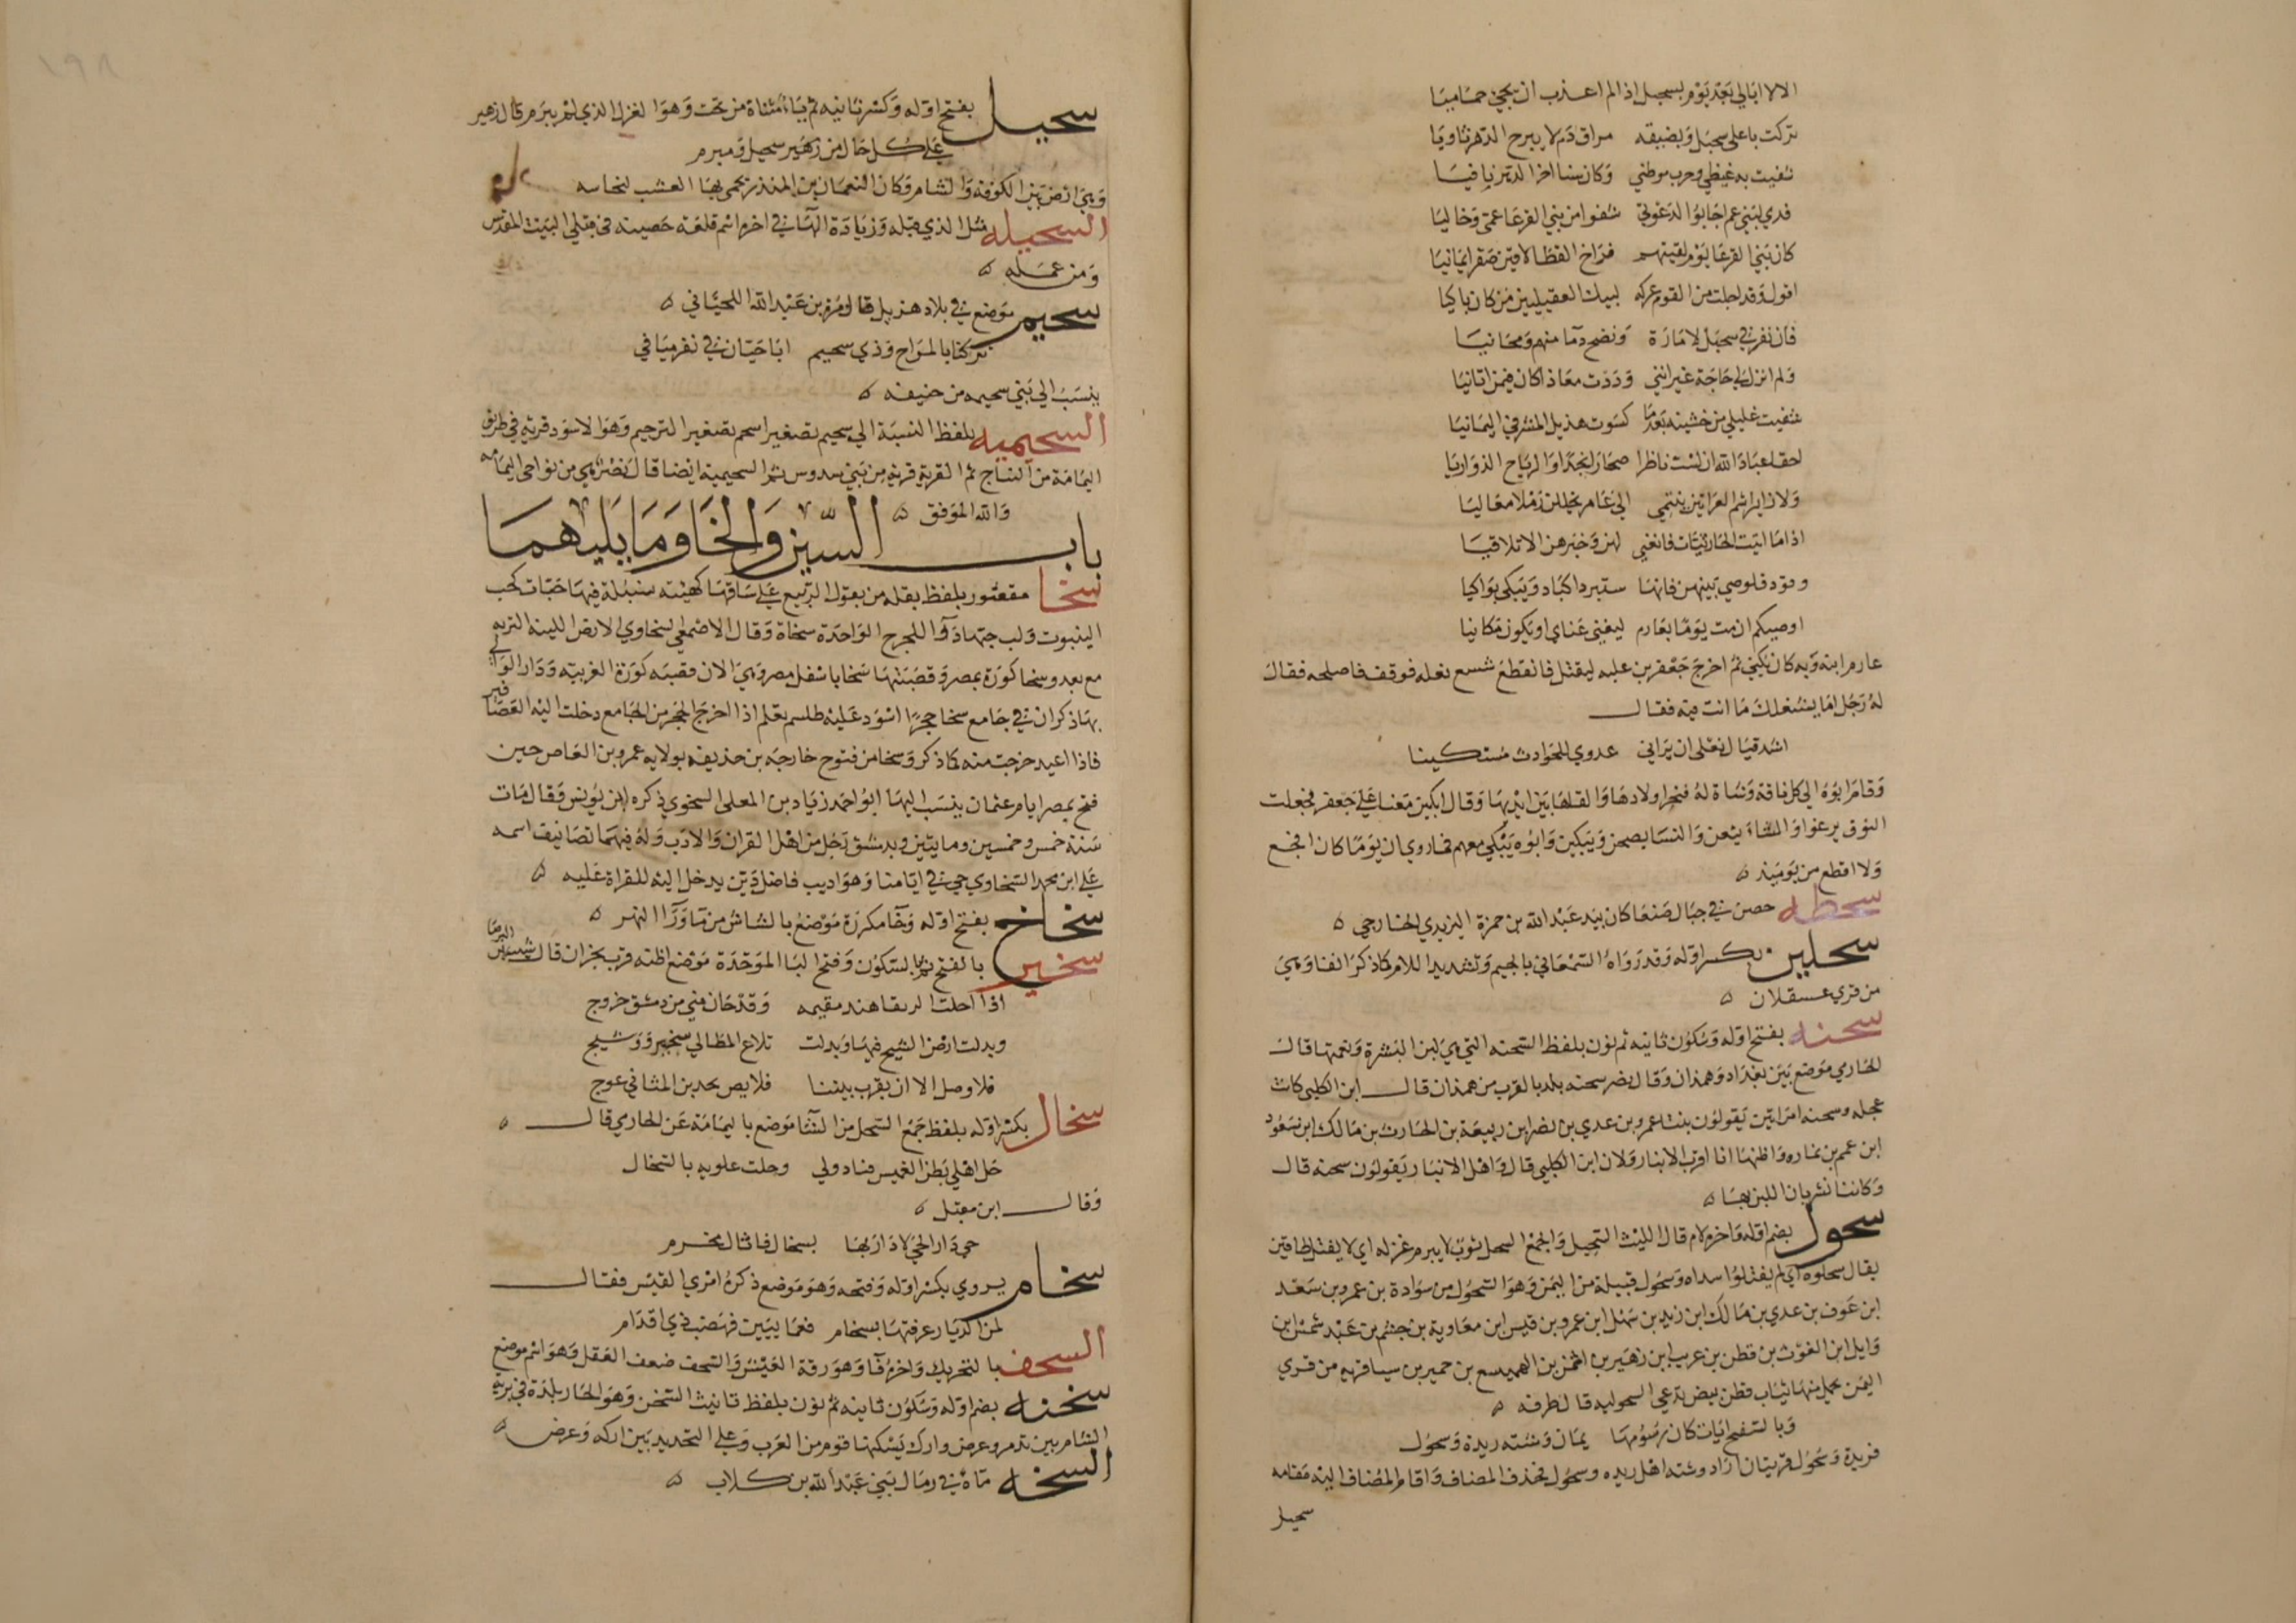 الا لا ابالي بَعْدَ يَوْم بسحبل اذا لم اعذب ان يجي حماميا
تركت باعلى سحبل وَبضيقه مراق دَم لا يبرح الدهر ثاويا
شفيت به غيظي وحرب موطني وَكان سنا اخر الدهر باقيا
فدي لبني عم اجابوا لدعوتي شفوا من بني القرعا عمي وَخاليا
كان بني القرعا يوم لقيتهم فراخ القطا لاقين صقرا يمانيا
اقول وَقد اجلت من القوم عركه ليبك العقيليين من كان باكيا
فان تقربي سحبل لامارة وَنضح دما منهم ومحابيا
وَلم اترك لي حَاجَة غير انني وَدَدت معَاذا كان فيمن اتانيا
شفيت غليلي من خشينه بَعدمَا كسَوت هذيل المشرفي اليمَانيا
احقا عبَادَ الله ان لست ناظرا صحاري نجد اوَ الرياح الذواريا
وَلا زايرا شم العرانين ينتمي الى عَامر يحللن رَمْلا معاليا
اذا مَا اتيت الحَارثيَات فانعني لهن وَخبرهن الا تلاقيا
وقود قلوصي بينهن فانها ستبرد اكبَاد وَيَبكي بَوَاكيا
اوصيكم ان مت يوَمًا بعَارم ليغني غنَاي او يكون مَكانيا
عارم ابنه وَبه كان يكني ثم اخرج جَعْفر بن علبه ليقتل فانقطع شسع نعله فوقف فاصلحه فقال
لهُ رَجُل امَا يشغلك مَا انت فيه فقال
اشد قبَال نعلى ان يرَاني عدوي للحَوادث مستكينا
وَقامَ ابوُهُ الى كل ناقة وَشاة لهُ فنحر اولادهَا وَالقاهَا بَين ايديهَا وَقال ابكين مَعنا عَلى جَعفر فجعلت
النوق يرغوا وَالشاء يثعن وَالنسَا يصحن وَيَبكين وَابُوه يَبْكي معهم فما روي ان يوَمًا كان افجع
وَلا اقطع من يَومَئِذ
سحطه حصن في جبَال صَنعَا كان بيَد عَبْد الله بن حمزة الزيدي الخَارجي
سحلين بكسر اوَله وَقد رَوَاهُ السَّمْعَاني بالجيم وَتشديد اللام كمَا ذكر انفا وَهيَ
من قري عسقلان
سحنه بفتح اوَله وَسكوُن ثانيه ثم نون بلفظ السحنه التي هي لين البَشرة وَنعمتهَا قال
الحَازمي مَوضع بَين بَغدَاد وَهمذان وَقال نصر سحنه بلد بالقرب من همذان قال ابن الكلبي كانت
عجله وسحنه امرَاتين يَقولون بنتا عمرو بن عدي بن نضر ابن ربيعَة بن الحَارث بن مَالك ابن سَعُود
ابن عمم بن نماره وَاظنهَا انا اقرب الانبار وَلان ابن الكلبي قال وَاهل الانبار يَقولوُن سحنه قال
وَكانتا تشربان اللبن بهَا
سحول بضم اوله وَاخره لام قال الليث السَّحيل وَالجمْع السحل ثوَب لا يبرم غزله اي لا يفتل طاقين
يقال سحلوه اي لم يفتلوُا سداه وَسحُول قبيلة من اليمَن وَهوَ السحُول من سوَادة بن عمرو بن سَعْد
ابن عَوف بن عدي بن مَالك ابن زيد بن سَهْل ابن عمرو بن قيس ابن معَاوية بن جشم بن عَبْد شمسْ ابن
وَايل ابن الغوْث بن قطن بن عريب ابن زهَير بن ايمن بن الهميسع بن حمير بن سبا قريه من قري
اليمَن يحمل منهَا ثيَاب قطن بيض تدعي السحوليه قال طرفه
وَبالسفح ايَات كان رسُومهَا يمَان وَشته ريدة وَسحوُل
فريدة وَسحُول قريتان ارَاد وشته اهل ريده وسحُول فحذف المضاف وَاقام المضاف اليه مقَامه
سحيل
١٩٨
سحيل بفتح اوَله وَكسر ثانيه ثم يَاء مثناة من تحت وَهوَا لغزل الذي لمْ يبرَم قال زهير
عَلى كل حَال من زهَير سحيل وَمبرم
وَهيَ ارض بَين الكوُفه وَالشام وَكان النعمَان بن المنذر يحمى بهَا العشب لنجاسه
السحيله مثل الذي قبله وَزيادَة الهَا في اخره اسْم قلعَة حَصينه في قبلي البَيت المقدس
وَمن عمَله
سحيم مَوَضع في بلاد هذيل قال مُرة بن عَبْد الله اللحيَاني
تركنا بالمرَاح وَذي سحيم ابَا حَيّان في نفر ميَافي
ينسَبُ الي بَني سحيمه من حنيفه
السحيميه بلفظ النسبَة الي سحيم تصغير اسحم تصغير الترخيم وَهوَ الاسوَد قريه في طريق
اليمَامَة من النبَاج ثم القرية قريه من بَني سدوس ثم السحيميه ايضا قال نَصْر هي من نواحى اليمَامه
وَالله الموَفق
باب السين وَالخَا وَمَا يَليهمَا
سَخَا مقصُور بلفظ بقله من بقوُل الربيع عَلى سَاقهَا كهَيئه سنبُلة فيهَا حَبّات كحب
الينبوت وَلب حبهَا دوَاء للجرح الوَاحدَة سخاة وَقال الاصْمعي السَخاوي الارض اللينه التربه
مع بعد وسخا كورَة بمصر وَقصَبتهَا سَخا باسْفل مصر وَهيَ الان قصبَه كورَة الغربيّه وَدَار الوَالي
بهَا ذكر ان في جَامع سخا حجرًا اسْود عَليْه طلسم يعلم اذا اخرج الحجَر من الجَامع دخلت اليْه العَصَافير
فاذا اعيد خرَجت منه كماذكر وَسخا من فتوح خارجَه بن حذيفه بولايه عمرو بن العَاص حين
فتح مصر ايام عثمان ينسَب اليهَا ابوُ احمَد زيَاد بن المعلى السخوي ذكره ابن يوُنس وَقال مَات
سَنَة خمس وخمسين ومايتين وبدمشق رَجُل من اهْل القران وَالادَب وَلهُ فيهمَا تصَانيف اسمه
عَلي ابن محمد السَّخاوي حي في ايامنا وَهوَ اديب فاضل دَيّن يدخل اليْه للقراة عَليه
سخاخ بفتح اوَله وَخَا مكررَة مَوْضعُ بالشاش من مَا وَرَا النهر
سخبر بالفتح ثم بالسّكوُن وَفتح البَا الموَحّدَة مَوْضع اظنه قرب نجران قال شبيب بن البرصَا
اذا احلت الرنقا هند مقيمه وَقدْ حَان مني من دمشق خروج
وَبدلت ارْض الشيح فيهَا وَبدلت تلاع المطالي سخبر وَوَشيج
فلا وصل الا ان يقرب بيننا قلايص يجذبن المثاني عوج
سخال بكسْر اوَله بلفظ جَمْع السخل من الشا مَوضع باليمَامَة عَن الحَازمي قال
حَل اهْلي بَطن الغميس فبادولي وحلت علويه بالسّخال
وَقال ابن مقبل
حي دَار الحَي لا دَارَ بهَا بسخال فاثال فحرم
سخام يروي بكسْر اوَله وَفتحه وَهوَ مَوضع ذكرهُ امْرى القيْس فقال
لمن الديَار عرفتهَا بسخام فعمَايتيَن فهَضب ذي اقدَام
السخف بالتحريك وَاخرهُ فا وَهوَ رقة العَيْش وَالسخف ضعف العَقل وَهوَ اسْم موضع
سخنه بضم اوَله وَسكوُن ثانيه ثم نون بلفظ تانيث السّخن وَهوَ الحَار بلدَة في بريه
الشام بين تدمر وعرض وارك يَسْكنها قوم من العَرب وَعلي التحديد بَين اركه وَعرض
السخه مَاءُ في رمَال بَني عَبْد الله بن كلاب